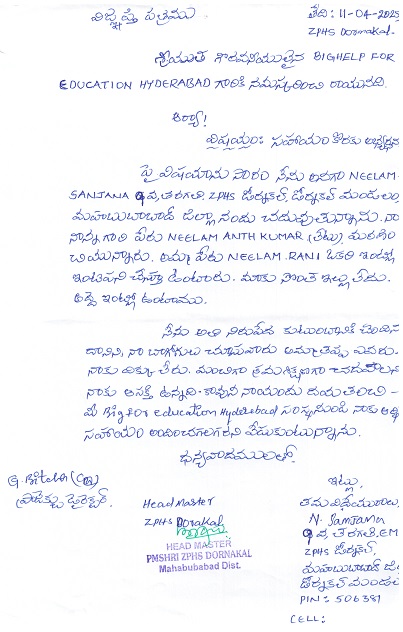 విజ్ఞప్తి పత్రము
తేది: 11-04-2025
ZPHS Dornakal.
శ్రీయుత గౌరవనీయులైన BIGHELP FOR
EDUCATION HYDERABAD గారికి నమస్కరించి రాయునది.
ఆర్యా!
విషయం: సహాయం కొరకు అభ్యర్థన
పై విషయాను సారం నేను అనగా NEELAM.
SANJANA 9వ తరగతి, ZPHS డోర్నకల్, డోర్నకల్ మండలం,
మహబుబాబాద్ జిల్లా నందు చదువుతున్నాను. నా
నాన్న గారి పేరు NEELAM ANTH KUMAR (లేటు) మరణిం
చియున్నారు. అమ్మ పేరు NEELAM. RANI ఒకరి ఇంట్లో
ఇంటిపని చేస్తూ ఉంటారు. మాకు సొంత ఇల్లు లేదు.
అద్దె ఇంట్లో ఉంటాము.
నేను అతి నిరుపేద కుటుంబానికి చెందిన
దానిని, నా బాగోగులు చూసేవారు అమ్మ తప్ప ఎవరు
నాకు దిక్కు లేరు. మంచిగా క్రమశిక్షణగా చదవాలని
నాకు ఆసక్తి ఉన్నది. కావున నాయందు దయ తలంచి -
మీ Big for education Hyderabad సంస్థ నుండి నాకు ఆర్థి
సహాయం అందించగలగరని వేడుకుంటున్నాను.
ధన్యవాదములతో.
G.
ప్రాజెక్టు డైరెక్టర్.
Head Master
ZPHS Dorakal
HEAD MASTER
PMSHRI ZPHS DORNAKAL
Mahabubabad Dist.
ఇట్లు,
తమ విధేయురాలు,
N. Sanjana
9వ తరగతి, EM
ZPHS డోర్నకల్,
మహబుబాబాద్ జి
డోర్నకల్ మండల
PIN: 506381
CELL: